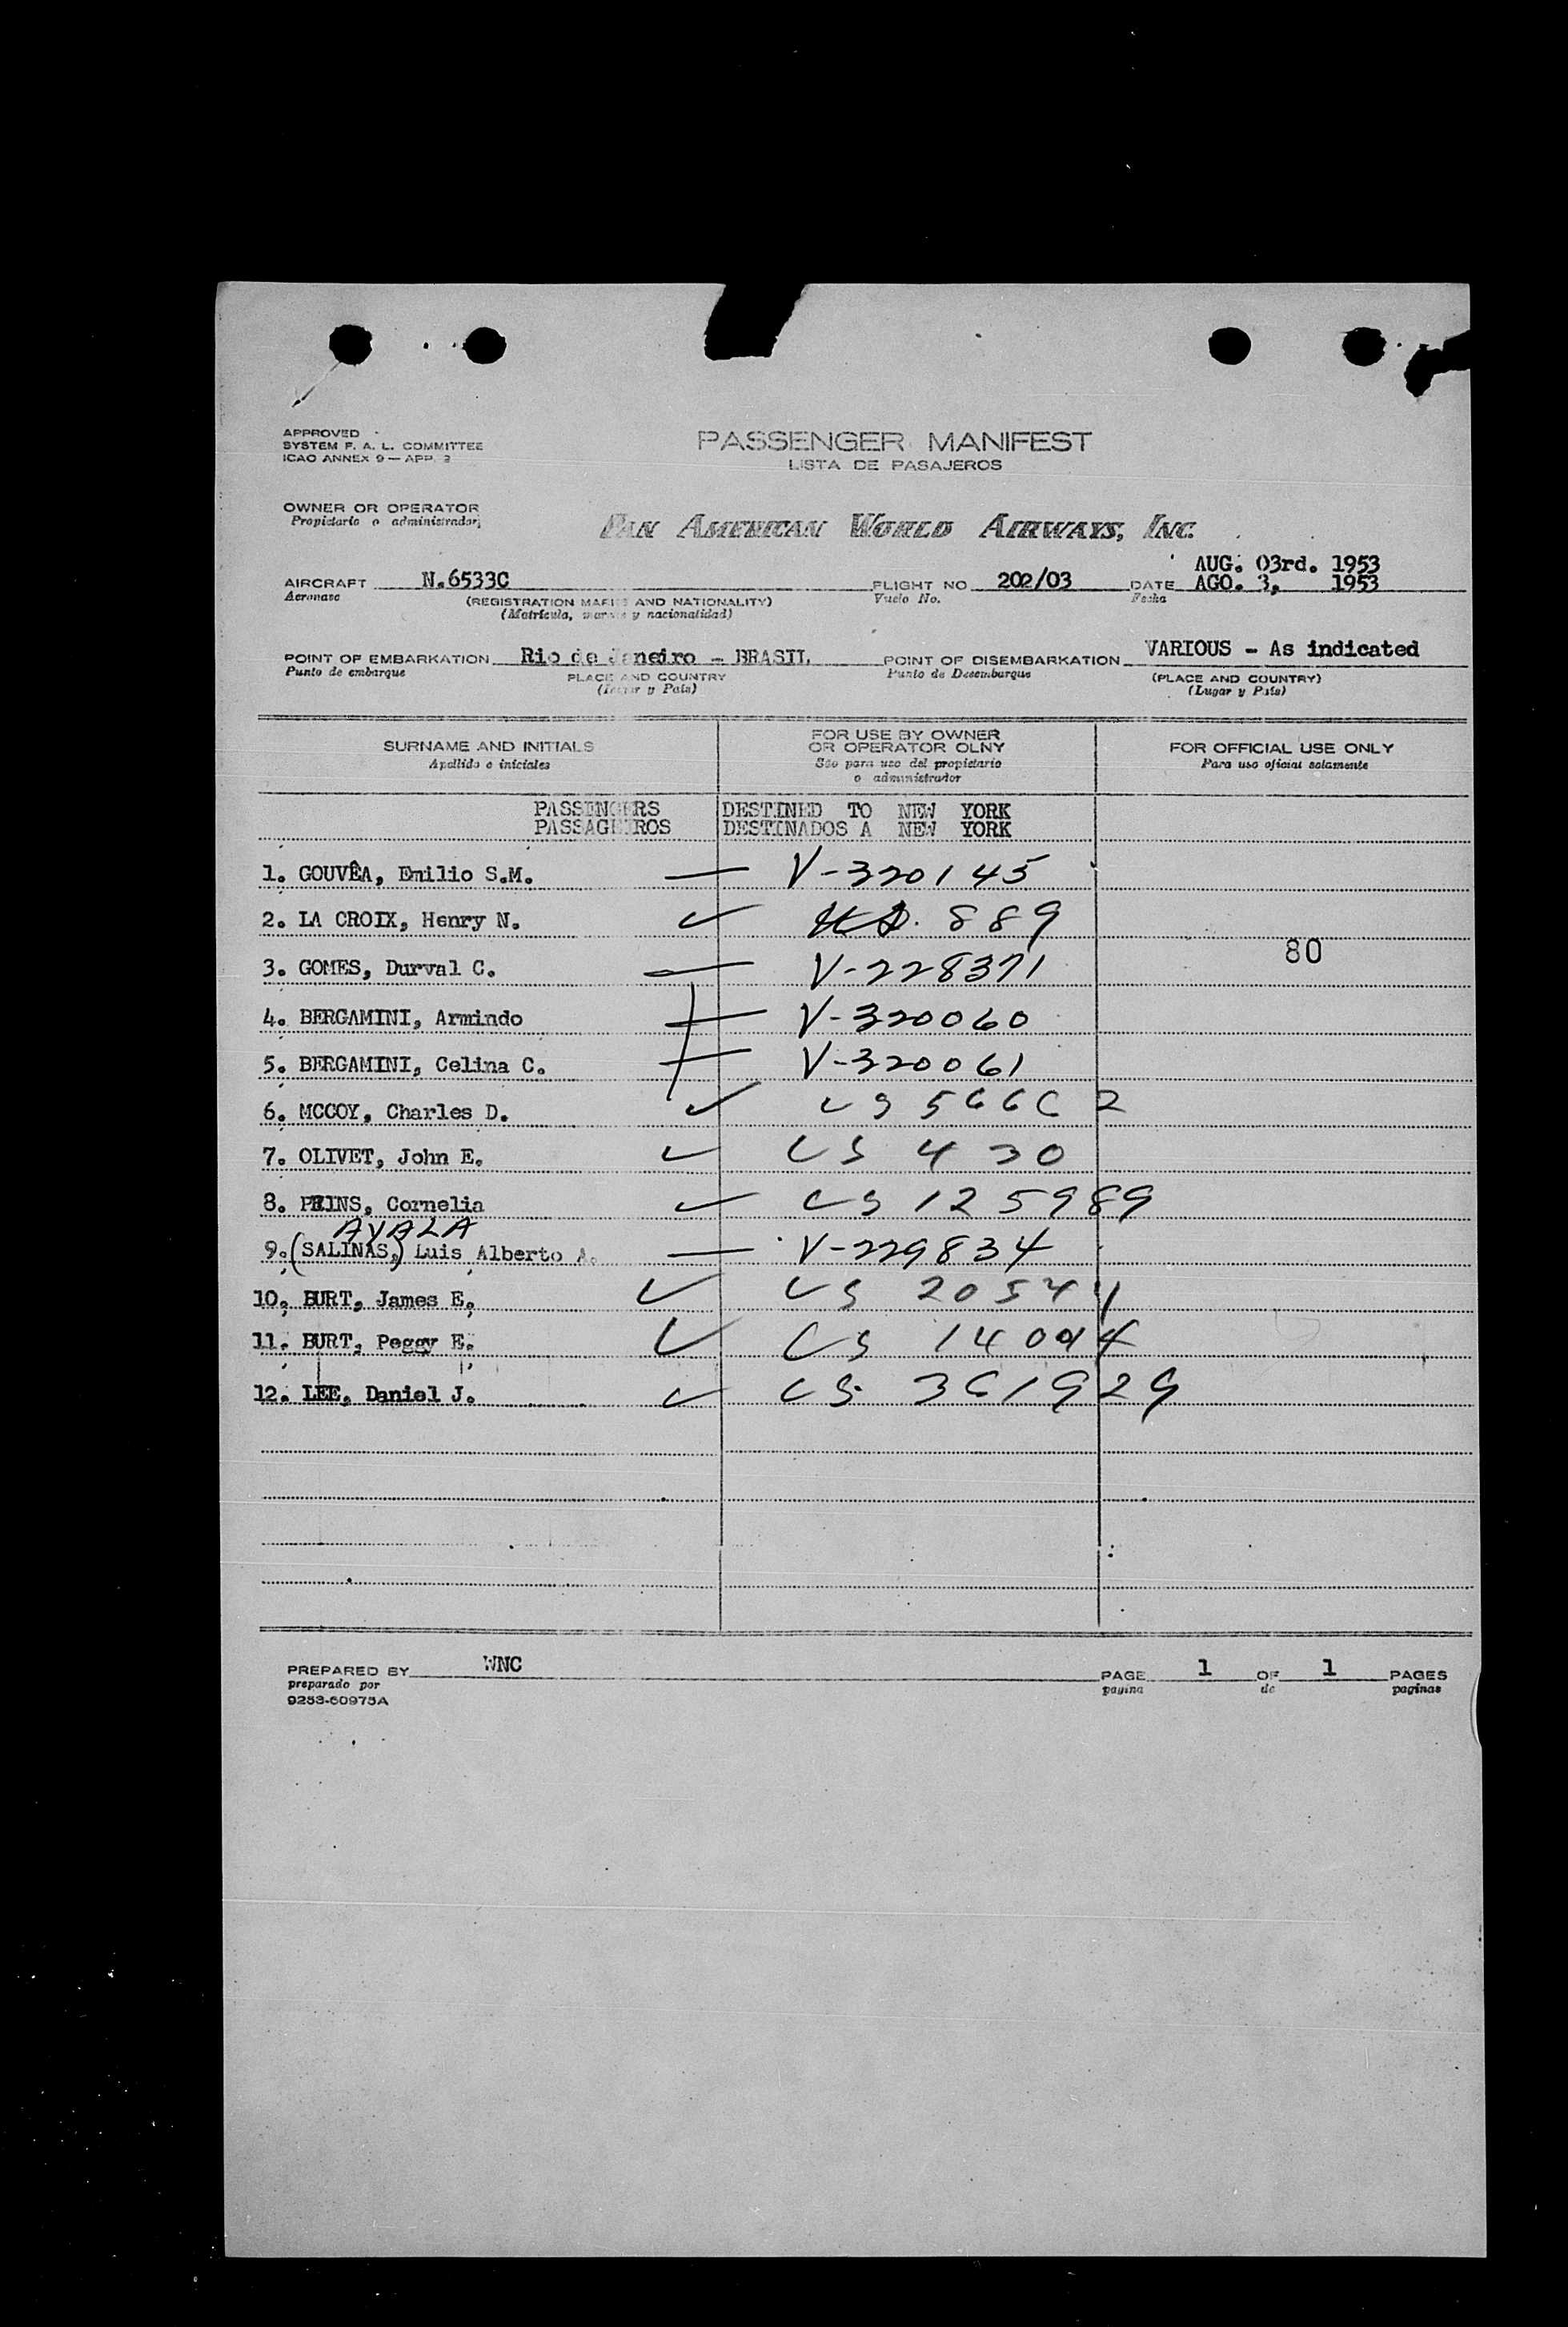 APPROVED
SYSTEM F. A. L. COMMITTEE
ICAO ANNEX 9 — APP. 2
PASSENGER MANIFEST
LISTA DE PASAJEROS
OWNER OR OPERATOR
Propietario o administrador
PAN AMERICAN WORLD AIRWAYS, INC.
AUG. 03rd. 1953
AIRCRAFT N.6533C FLIGHT NO 202/03 DATE AGO. 3, 1953
Aeronave Vuelo No. Fecha
(REGISTRATION MARKS AND NATIONALITY)
(Matrícula, marcas y nacionalidad)
POINT OF EMBARKATION Rio de Janeiro - BRASIL POINT OF DISEMBARKATION VARIOUS - As indicated
Punto de embarque PLACE AND COUNTRY Punto de Desembarque (PLACE AND COUNTRY)
(Lugar y País) (Lugar y País)
SURNAME AND INITIALS FOR USE BY OWNER OR OPERATOR OLNY FOR OFFICIAL USE ONLY
Apellido e iniciales Sóo para uso del propietario o administrador Para uso oficial solamente
PASSENGERS DESTINED TO NEW YORK
PASSAGEIROS DESTINADOS A NEW YORK
1. GOUVÊA, Emilio S.M. — V-320145
2. LA CROIX, Henry N. ✓ 889
80
3. GOMES, Durval C. — V-228371
4. BERGAMINI, Armindo — V-320060
5. BERGAMINI, Celina C. — V-320061
6. MCCOY, Charles D. ✓ US 56662
7. OLIVET, John E. ✓ US 430
8. PEINS, Cornelia ✓ US 125989
AYALA
9. (SALINAS,) Luis Alberto A. — V-229834
10. BURT, James E. ✓ US 20544
11. BURT, Peggy E. ✓ US 14094
12. LEE, Daniel J. ✓ US 361929
PREPARED BY WNC PAGE 1 OF 1 PAGES
preparado por pagina de paginas
9253-60975A